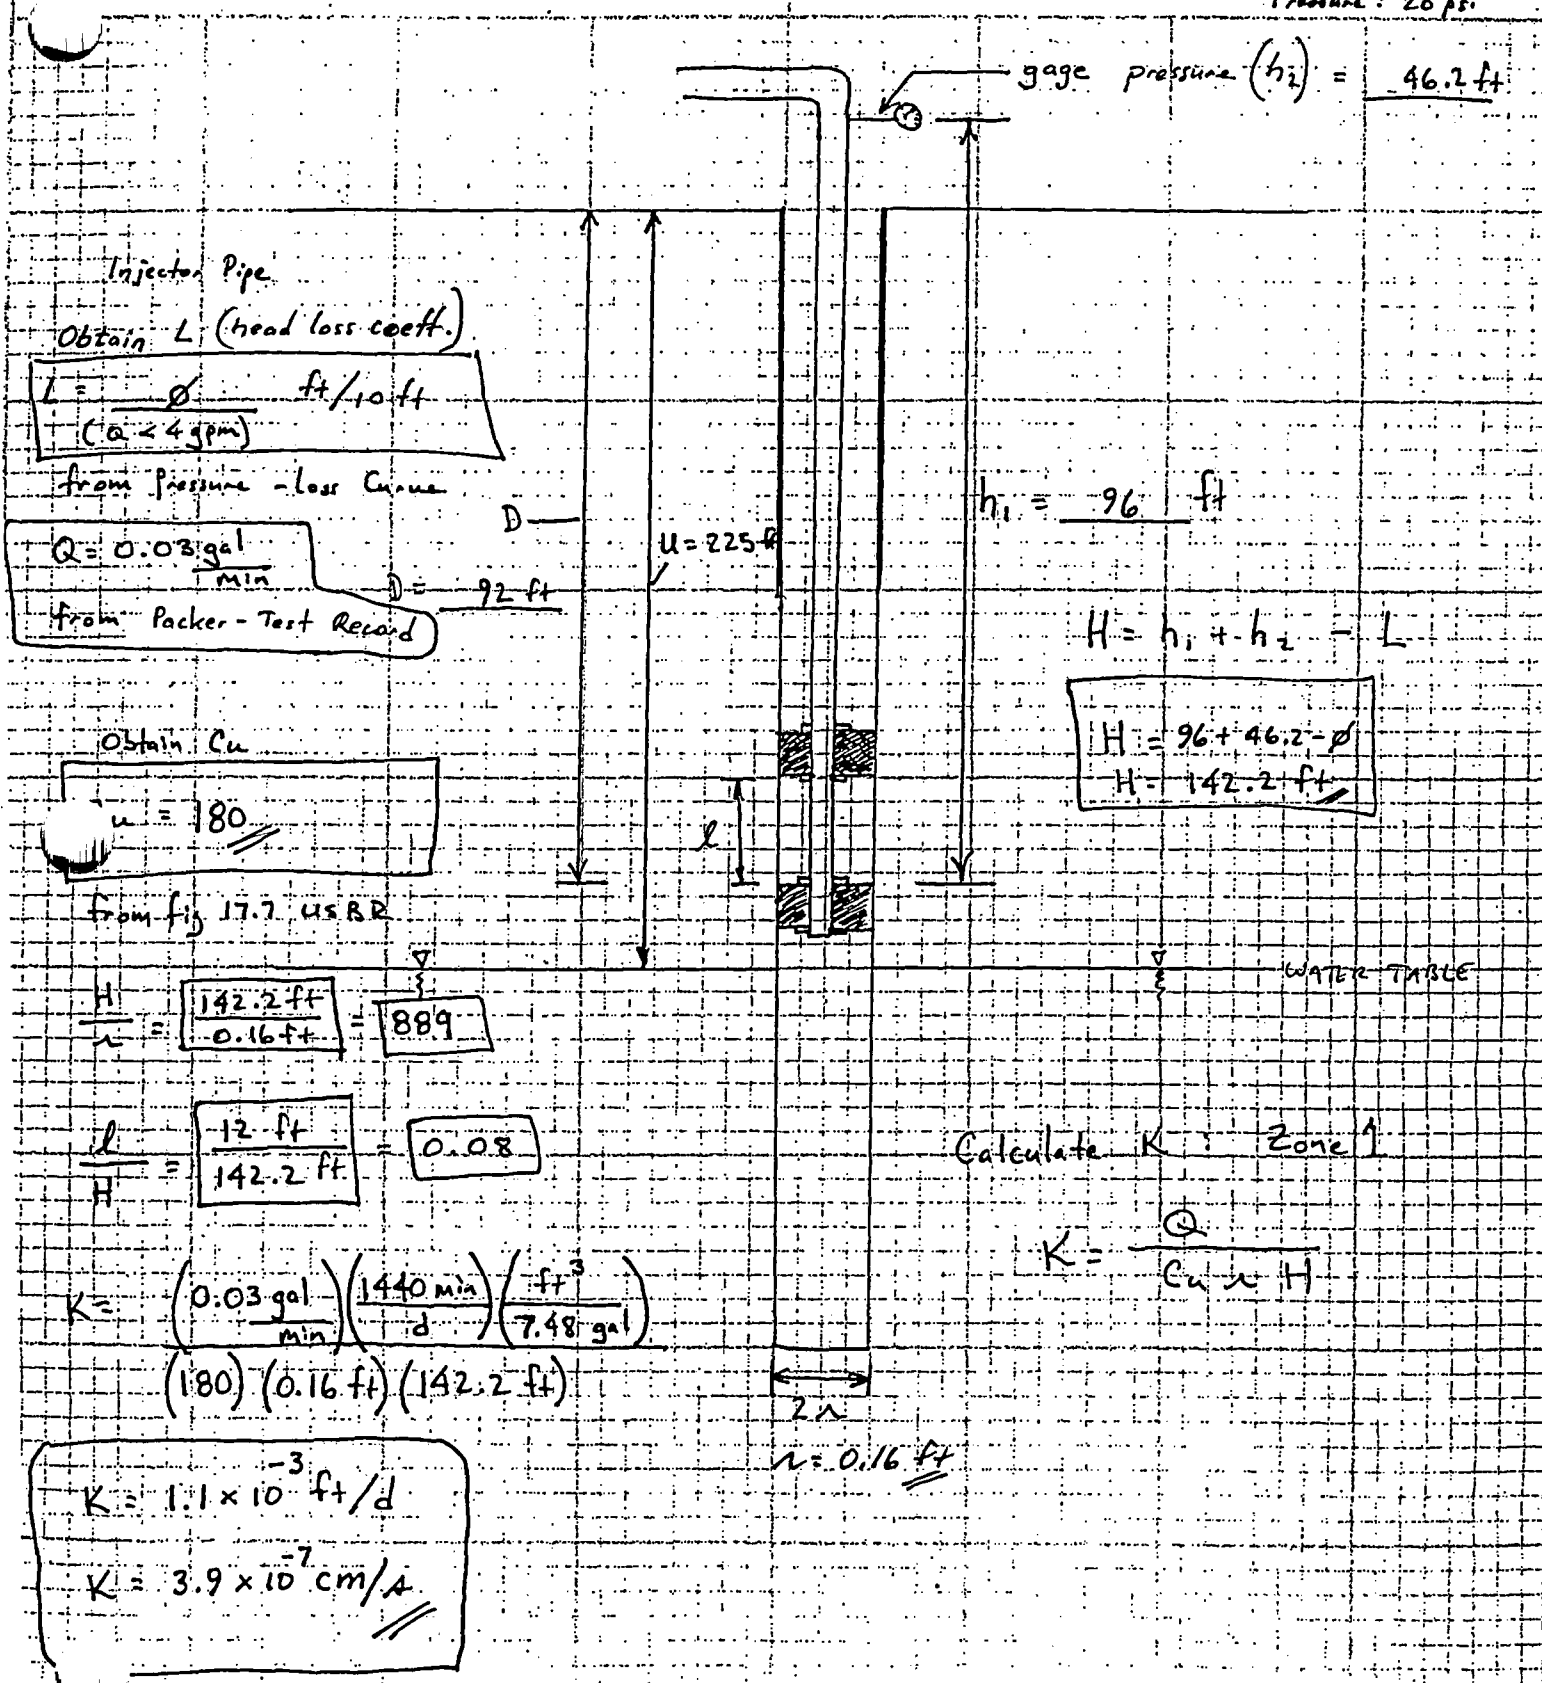 Pressure: 20 psi
gage pressure (h₂) = 46.2 ft
Injector Pipe
Obtain L (head loss coeff.)
L = ∅ ft/10 ft
(Q < 4 gpm)
from Pressure-loss Curve
Q = 0.03 gal/min
from Packer-Test Record
D
D = 92 ft
U = 225 ft
h₁ = 96 ft
H = h₁ + h₂ - L
H = 96 + 46.2 - ∅
H = 142.2 ft
Obtain Cu
u = 180
from fig 17.7 USBR
l
WATER TABLE
H/r = 142.2 ft/0.16 ft = 889
l/H = 12 ft/142.2 ft = 0.08
Calculate K : Zone 1
K = Q/(Cu r H)
K = (0.03 gal/min)(1440 min/d)(ft³/7.48 gal)
(180) (0.16 ft) (142.2 ft)
2r
r = 0.16 ft
K = 1.1 × 10⁻³ ft/d
K = 3.9 × 10⁻⁷ cm/s